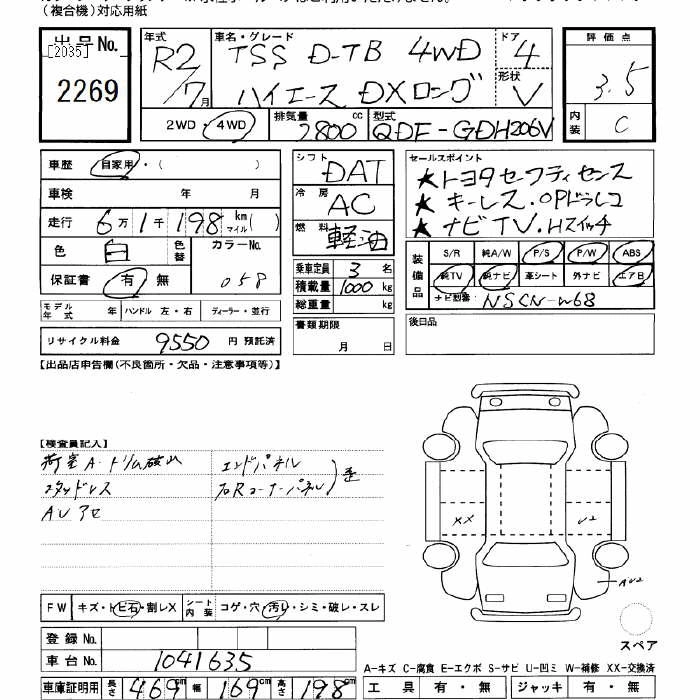 (複合機)対応用紙
出品No.
[2035]
2269
年式 R2/7月
車名・グレード TSS D-TB 4WD
ハイエース DXロング
ドア 4
形状 V
2WD・4WD
排気量 2800 cc
型式 QDF-GDH206V
評価点 3.5
内装 C
車歴 自家用・( )
車検 年 月
走行 6万1千198 km マイル( )
色 白 色替 カラーNo. 058
保証書 有・無
モデル年式 年 ハンドル 左・右 ディーラー・並行
リサイクル料金 9550 円 預託済
シフト DAT
冷房 AC
燃料 軽油
乗車定員 3 名
積載量 1000 kg
総重量 kg
書類期限
月 日
セールスポイント
★トヨタセーフティセンス
★キーレス.OPドラレコ
★ナビTV.Hスイッチ
装備品 S/R 純A/W P/S P/W ABS
純TV 純ナビ 革シート 外ナビ エアB
ナビ型番 NSCN-W68
後日品
【出品店申告欄(不良箇所・欠品・注意事項等)】
【検査員記入】
荷室A・トリム破れ
スタッドレス
AUアセ
エンドパネル
右Rコーナーパネル
歪
XX
U2
AU2
スペア
FW キズ・トビ石・割レX
シート内装 コゲ・穴・汚レ・シミ・破レ・スレ
登録No.
車台No. 1041635
車庫証明用 長さ 469cm 幅 169cm 高さ 198cm
A-キズ C-腐食 E-エクボ S-サビ U-凹ミ W-補修 XX-交換済
工具 有・無 ジャッキ 有・無